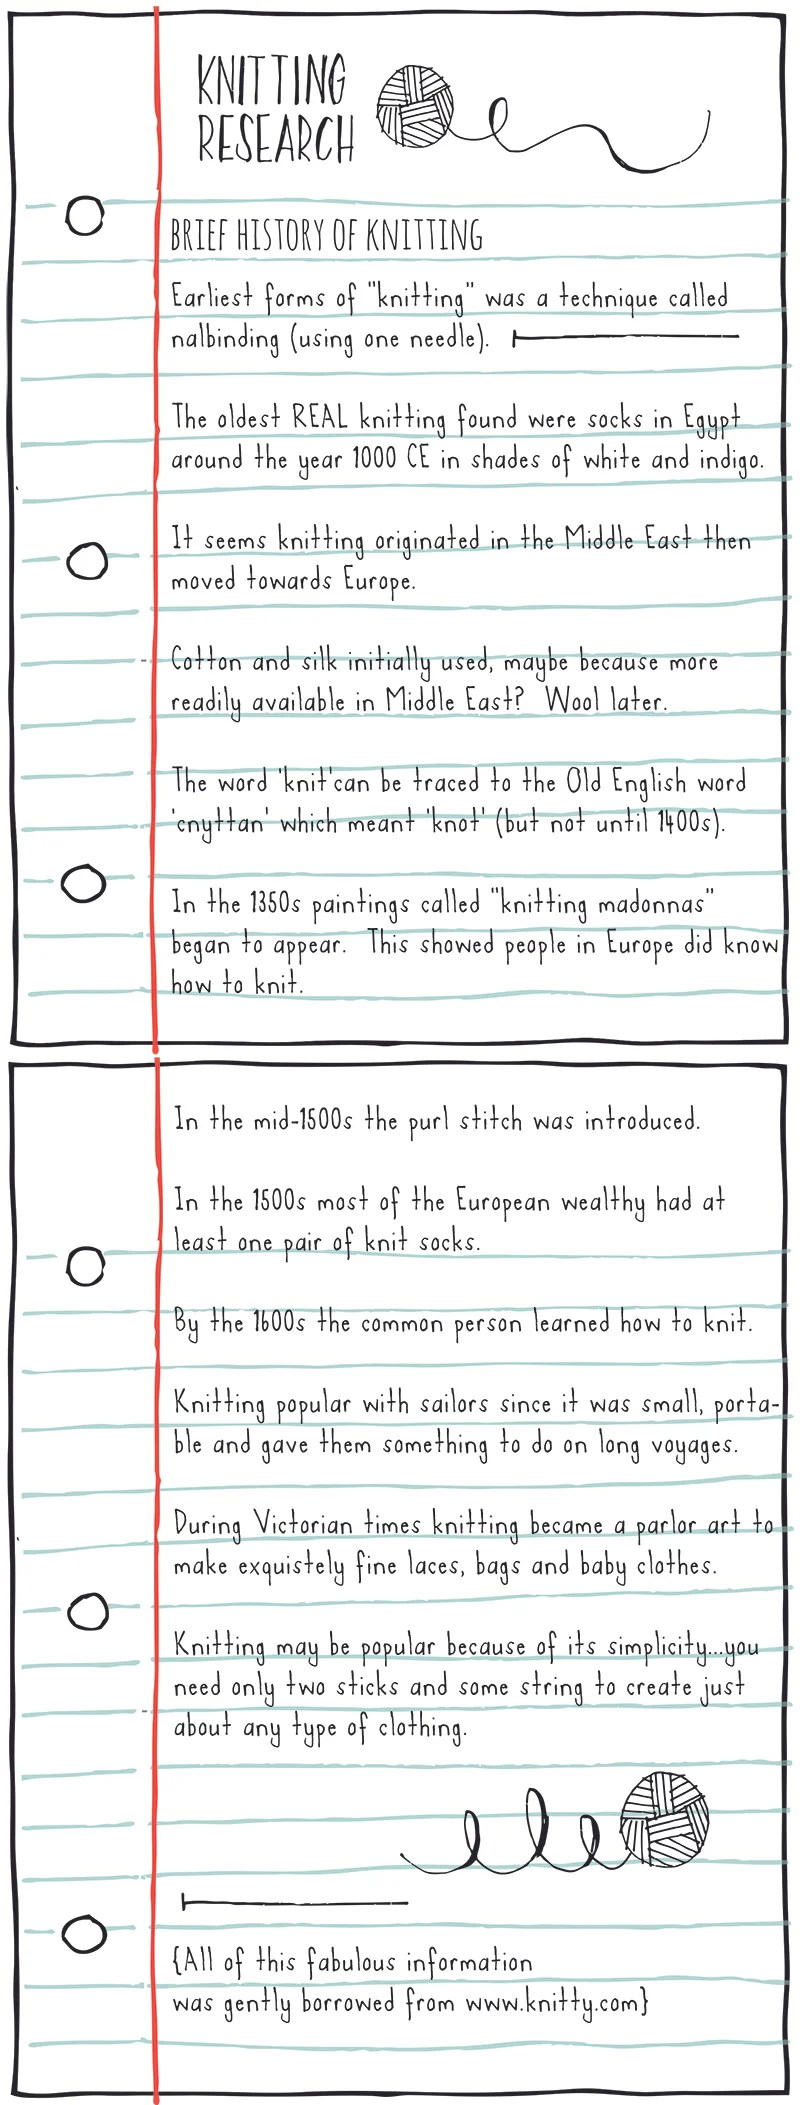 KNITTING
RESEARCH
BRIEF HISTORY OF KNITTING
Earliest forms of "knitting" was a technique called
nalbinding (using one needle).
The oldest REAL knitting found were socks in Egypt
around the year 1000 CE in shades of white and indigo.
It seems knitting originated in the Middle East then
moved towards Europe.
Cotton and silk initially used, maybe because more
readily available in Middle East? Wool later.
The word 'knit'can be traced to the Old English word
'cnyttan' which meant 'knot' (but not until 1400s).
In the 1350s paintings called "knitting madonnas"
began to appear. This showed people in Europe did know
how to knit.
In the mid-1500s the purl stitch was introduced.
In the 1500s most of the European wealthy had at
least one pair of knit socks.
By the 1600s the common person learned how to knit.
Knitting popular with sailors since it was small, porta-
ble and gave them something to do on long voyages.
During Victorian times knitting became a parlor art to
make exquistely fine laces, bags and baby clothes.
Knitting may be popular because of its simplicity...you
need only two sticks and some string to create just
about any type of clothing.
{All of this fabulous information
was gently borrowed from www.knitty.com}